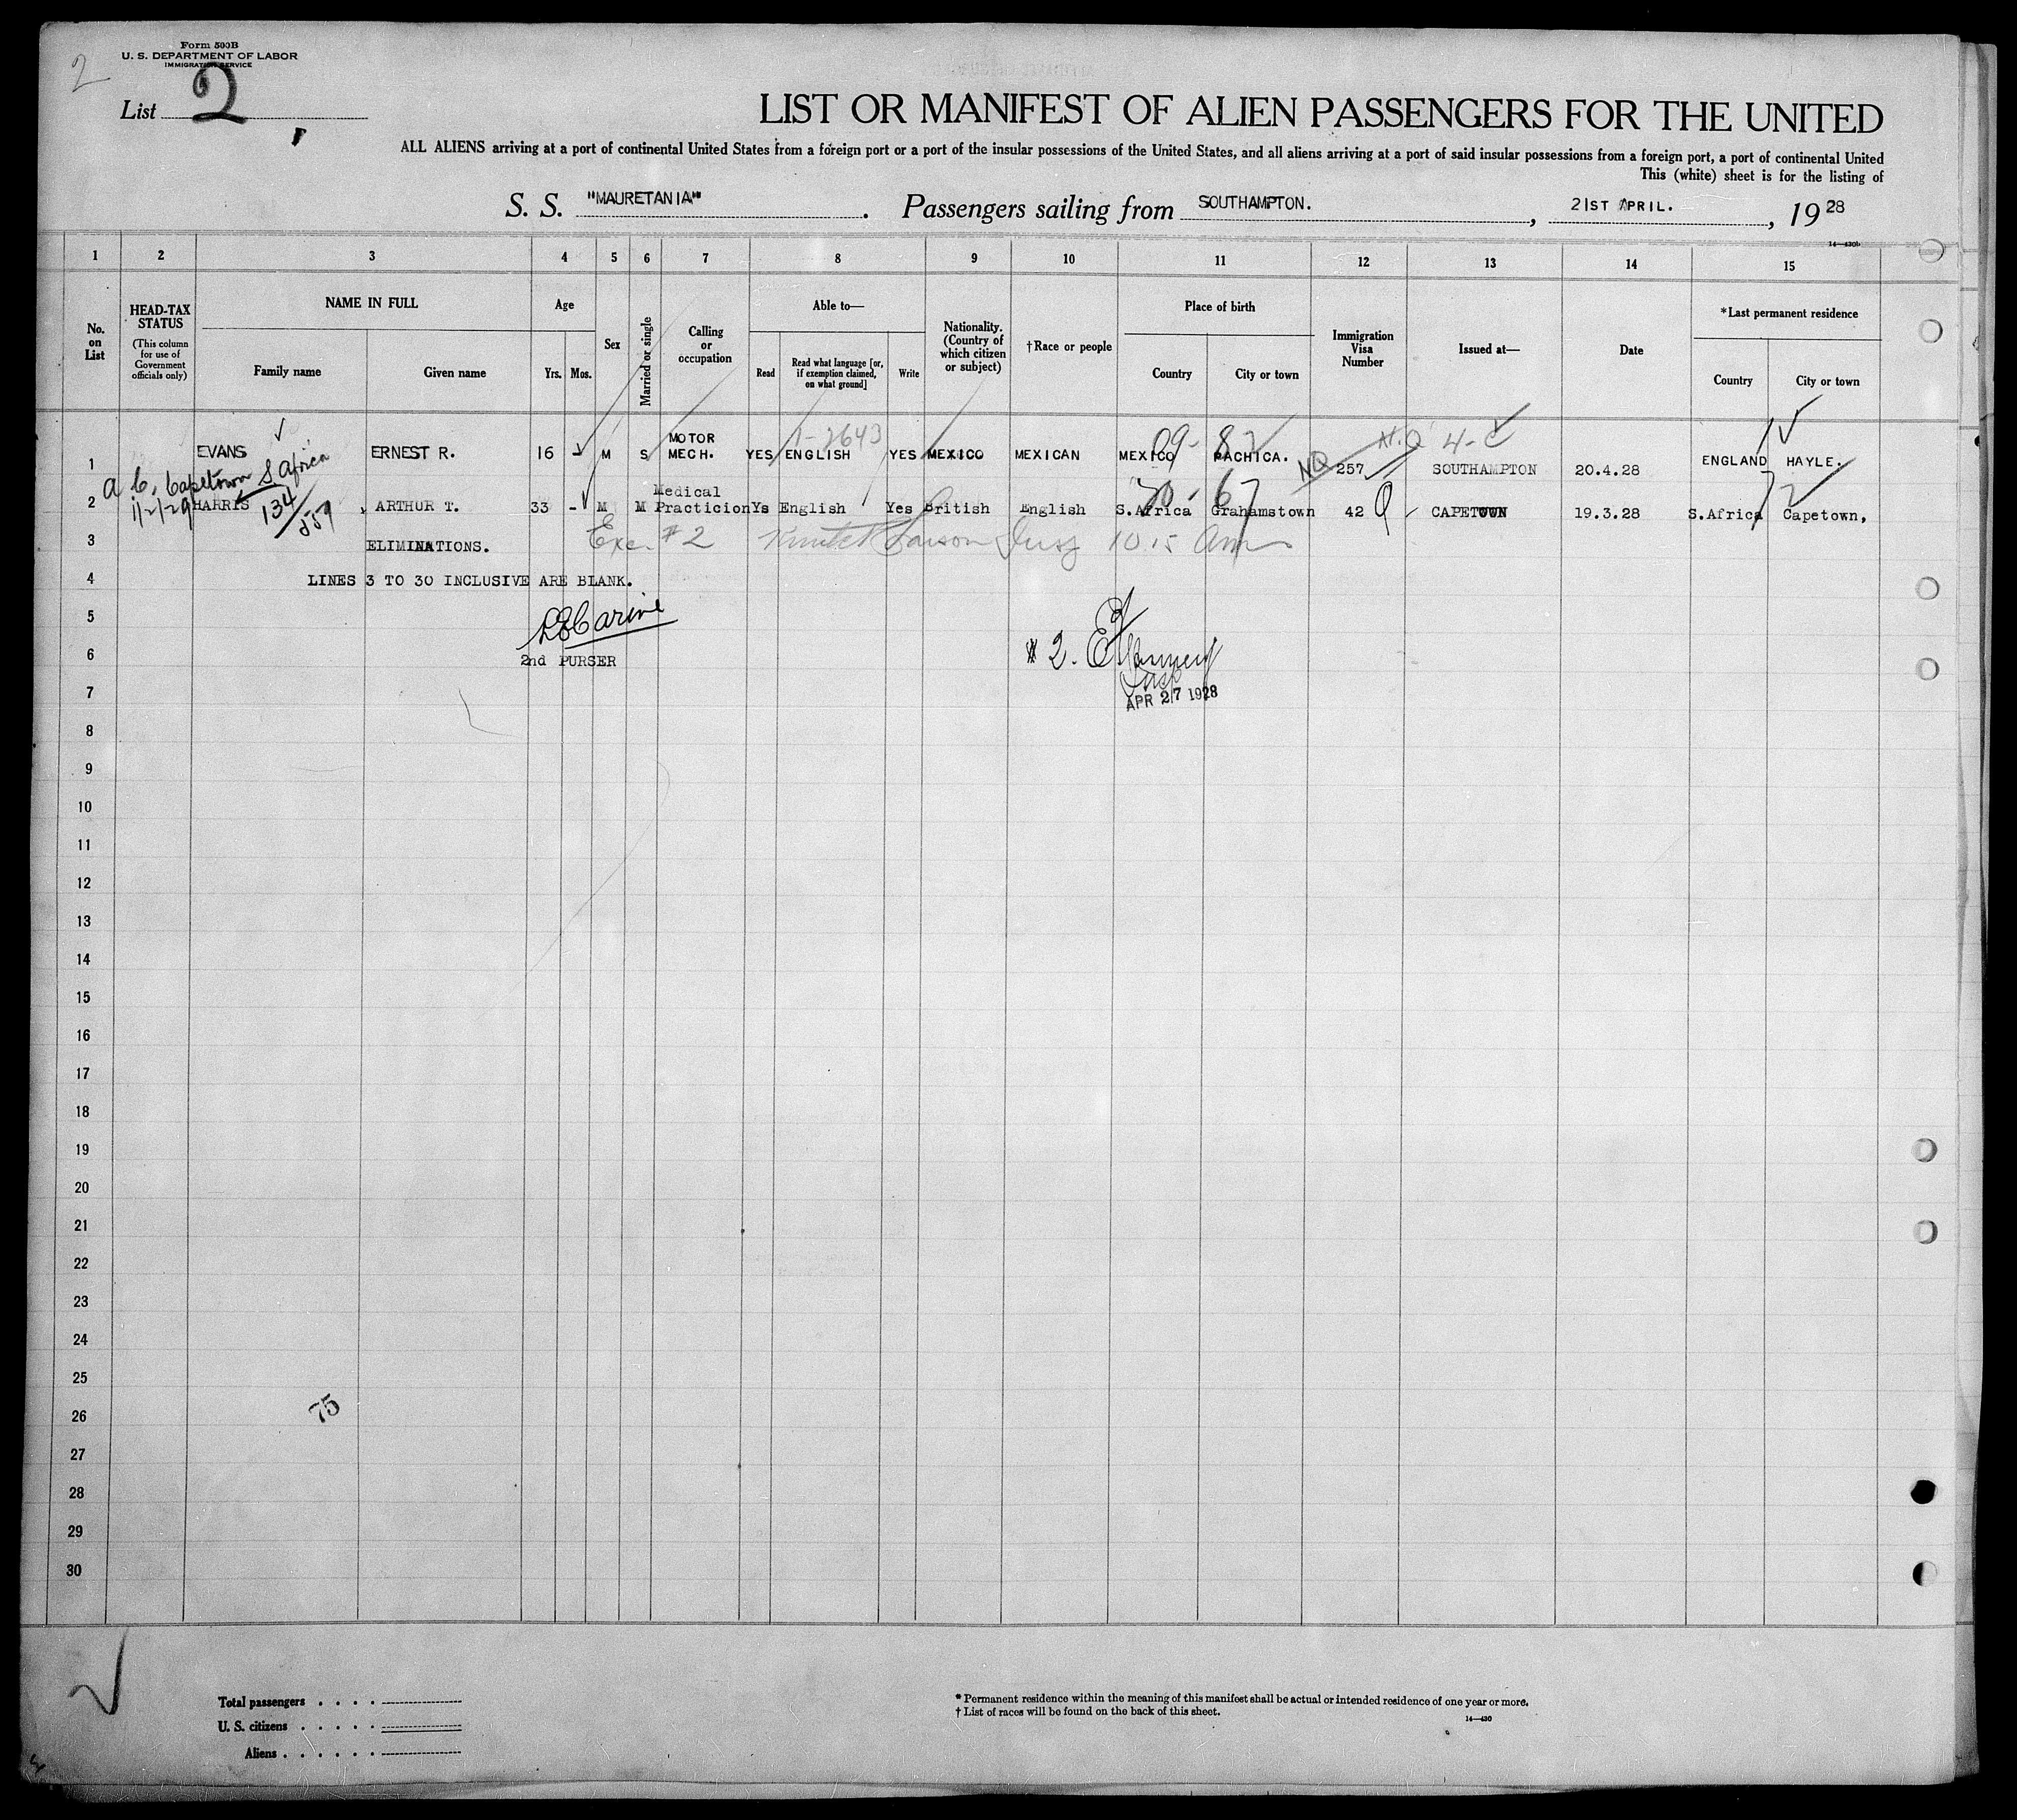 Form 500B
U. S. DEPARTMENT OF LABOR
IMMIGRATION SERVICE
2
List 2
LIST OR MANIFEST OF ALIEN PASSENGERS FOR THE UNITED
ALL ALIENS arriving at a port of continental United States from a foreign port or a port of the insular possessions of the United States, and all aliens arriving at a port of said insular possessions from a foreign port, a port of continental United
This (white) sheet is for the listing of
S. S. "MAURETANIA". Passengers sailing from SOUTHAMPTON., 21ST APRIL., 1928
1 2 3 4 5 6 7 8 9 10 11 12 13 14 15
No. on List
HEAD-TAX STATUS
(This column for use of Government officials only)
NAME IN FULL
Family name Given name
Age
Yrs. Mos.
Sex
Married or single
Calling or occupation
Able to—
Read Read what language [or, if exemption claimed, on what ground] Write
Nationality. (Country of which citizen or subject)
†Race or people
Place of birth
Country City or town
Immigration Visa Number
Issued at—
Date
*Last permanent residence
Country City or town
1-2643 09- 87 N.Q 4-C
1 EVANS ERNEST R. 16 - M S MOTOR MECH. YES ENGLISH YES MEXICO MEXICAN MEXICO PACHICA. NQ 257 SOUTHAMPTON 20.4.28 ENGLAND HAYLE.
a C, Capetown S Africa
11/2/29 134/559
70- 67
2 HARRIS ARTHUR T. 33 - M M Medical Practicion Yes English Yes British English S.Africa Grahamstown 42 Q CAPETOWN 19.3.28 S.Africa Capetown,
3 ELIMINATIONS. Exc. #2 10.15 am
4 LINES 3 TO 30 INCLUSIVE ARE BLANK.
5
6 2nd PURSER # 2.
7 APR 27 1928
8
9
10
11
12
13
14
15
16
17
18
19
20
21
22
23
24
25
26 75
27
28
29
30
Total passengers . . . .
U. S. citizens . . . . .
Aliens . . . . . .
* Permanent residence within the meaning of this manifest shall be actual or intended residence of one year or more.
† List of races will be found on the back of this sheet.
14—430